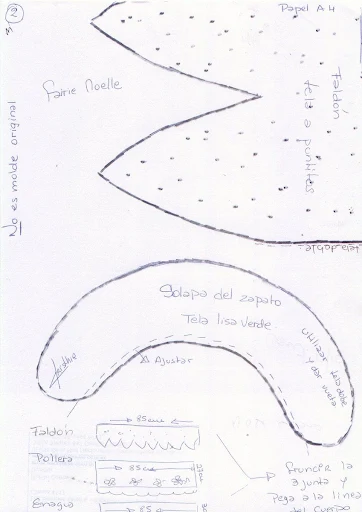 2
Papel A4
Fairie Noelle
Faldón
tela a puntitos
No es molde original
Solapa del zapato
Tela lisa verde
Ajustar
Utilizar tela doble
y dar vuelta
Faldón
85cm
Pollera
85cm
Enagua
85
fruncir la
ajusta y
pega a la linea
del cuerpo